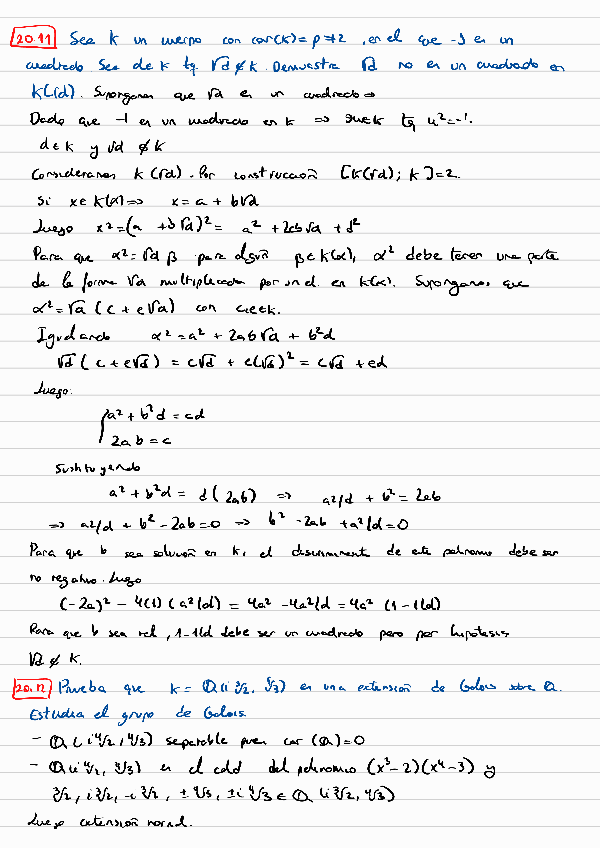 20.11 Sea k un cuerpo con car(k)= p≠2, en el que -1 es un
cuadrado. Sea d∈k tq √d∉k. Demuestra √d no es un cuadrado en
k(√d). Supongamos que √d es un cuadrado ⇒
Dado que -1 es un cuadrado en k ⇒ ∃u∈k tq u²=-1.
d∈k y √d ∉k
Consideramos k(√d). Por construcción [k(√d); k]=2.
Si x∈k(α)⇒ x=a+b√d
Luego x²=(a+b√d)²= a²+2ab√d+
Para que α²=√d β para algún β∈k(α), α² debe tener una parte
de la forma √d multiplicada por un el. en k(α). Supongamos que
α²=√d(c+e√d) con c,e∈k.
Igualando α²=a²+2ab√d+b²d
√d(c+e√d) = c√d + e(√d)² = c√d + ed
Luego.
a²+b²d=cd
2ab=c
Sustituyendo
a²+b²d= d(2ab) ⇒ a²/d + b²=2ab
⇒ a²/d + b²-2ab=0 ⇒ b²-2ab+a²/d=0
Para que b sea solución en k, el discriminante de este polinomio debe ser
no negativo. Luego
(-2a)²-4(1)(a²/d) = 4a²-4a²/d=4a²(1-1/d)
Para que b sea rel, 1-1/d debe ser un cuadrado pero por hipótesis
√d∉k.
20.12 Prueba que k=Q(i∛2, ∜3) es una extensión de Galois sobre Q.
Estudia el grupo de Galois.
- separable pues car(Q)=0
- es el cdd del polinomio (x³-2)(x⁴-3) y
∛2, i∛2, -i∛2, ±∜3, ±i∜3 ∈ Q(i∛2, ∜3)
Luego extensión normal.